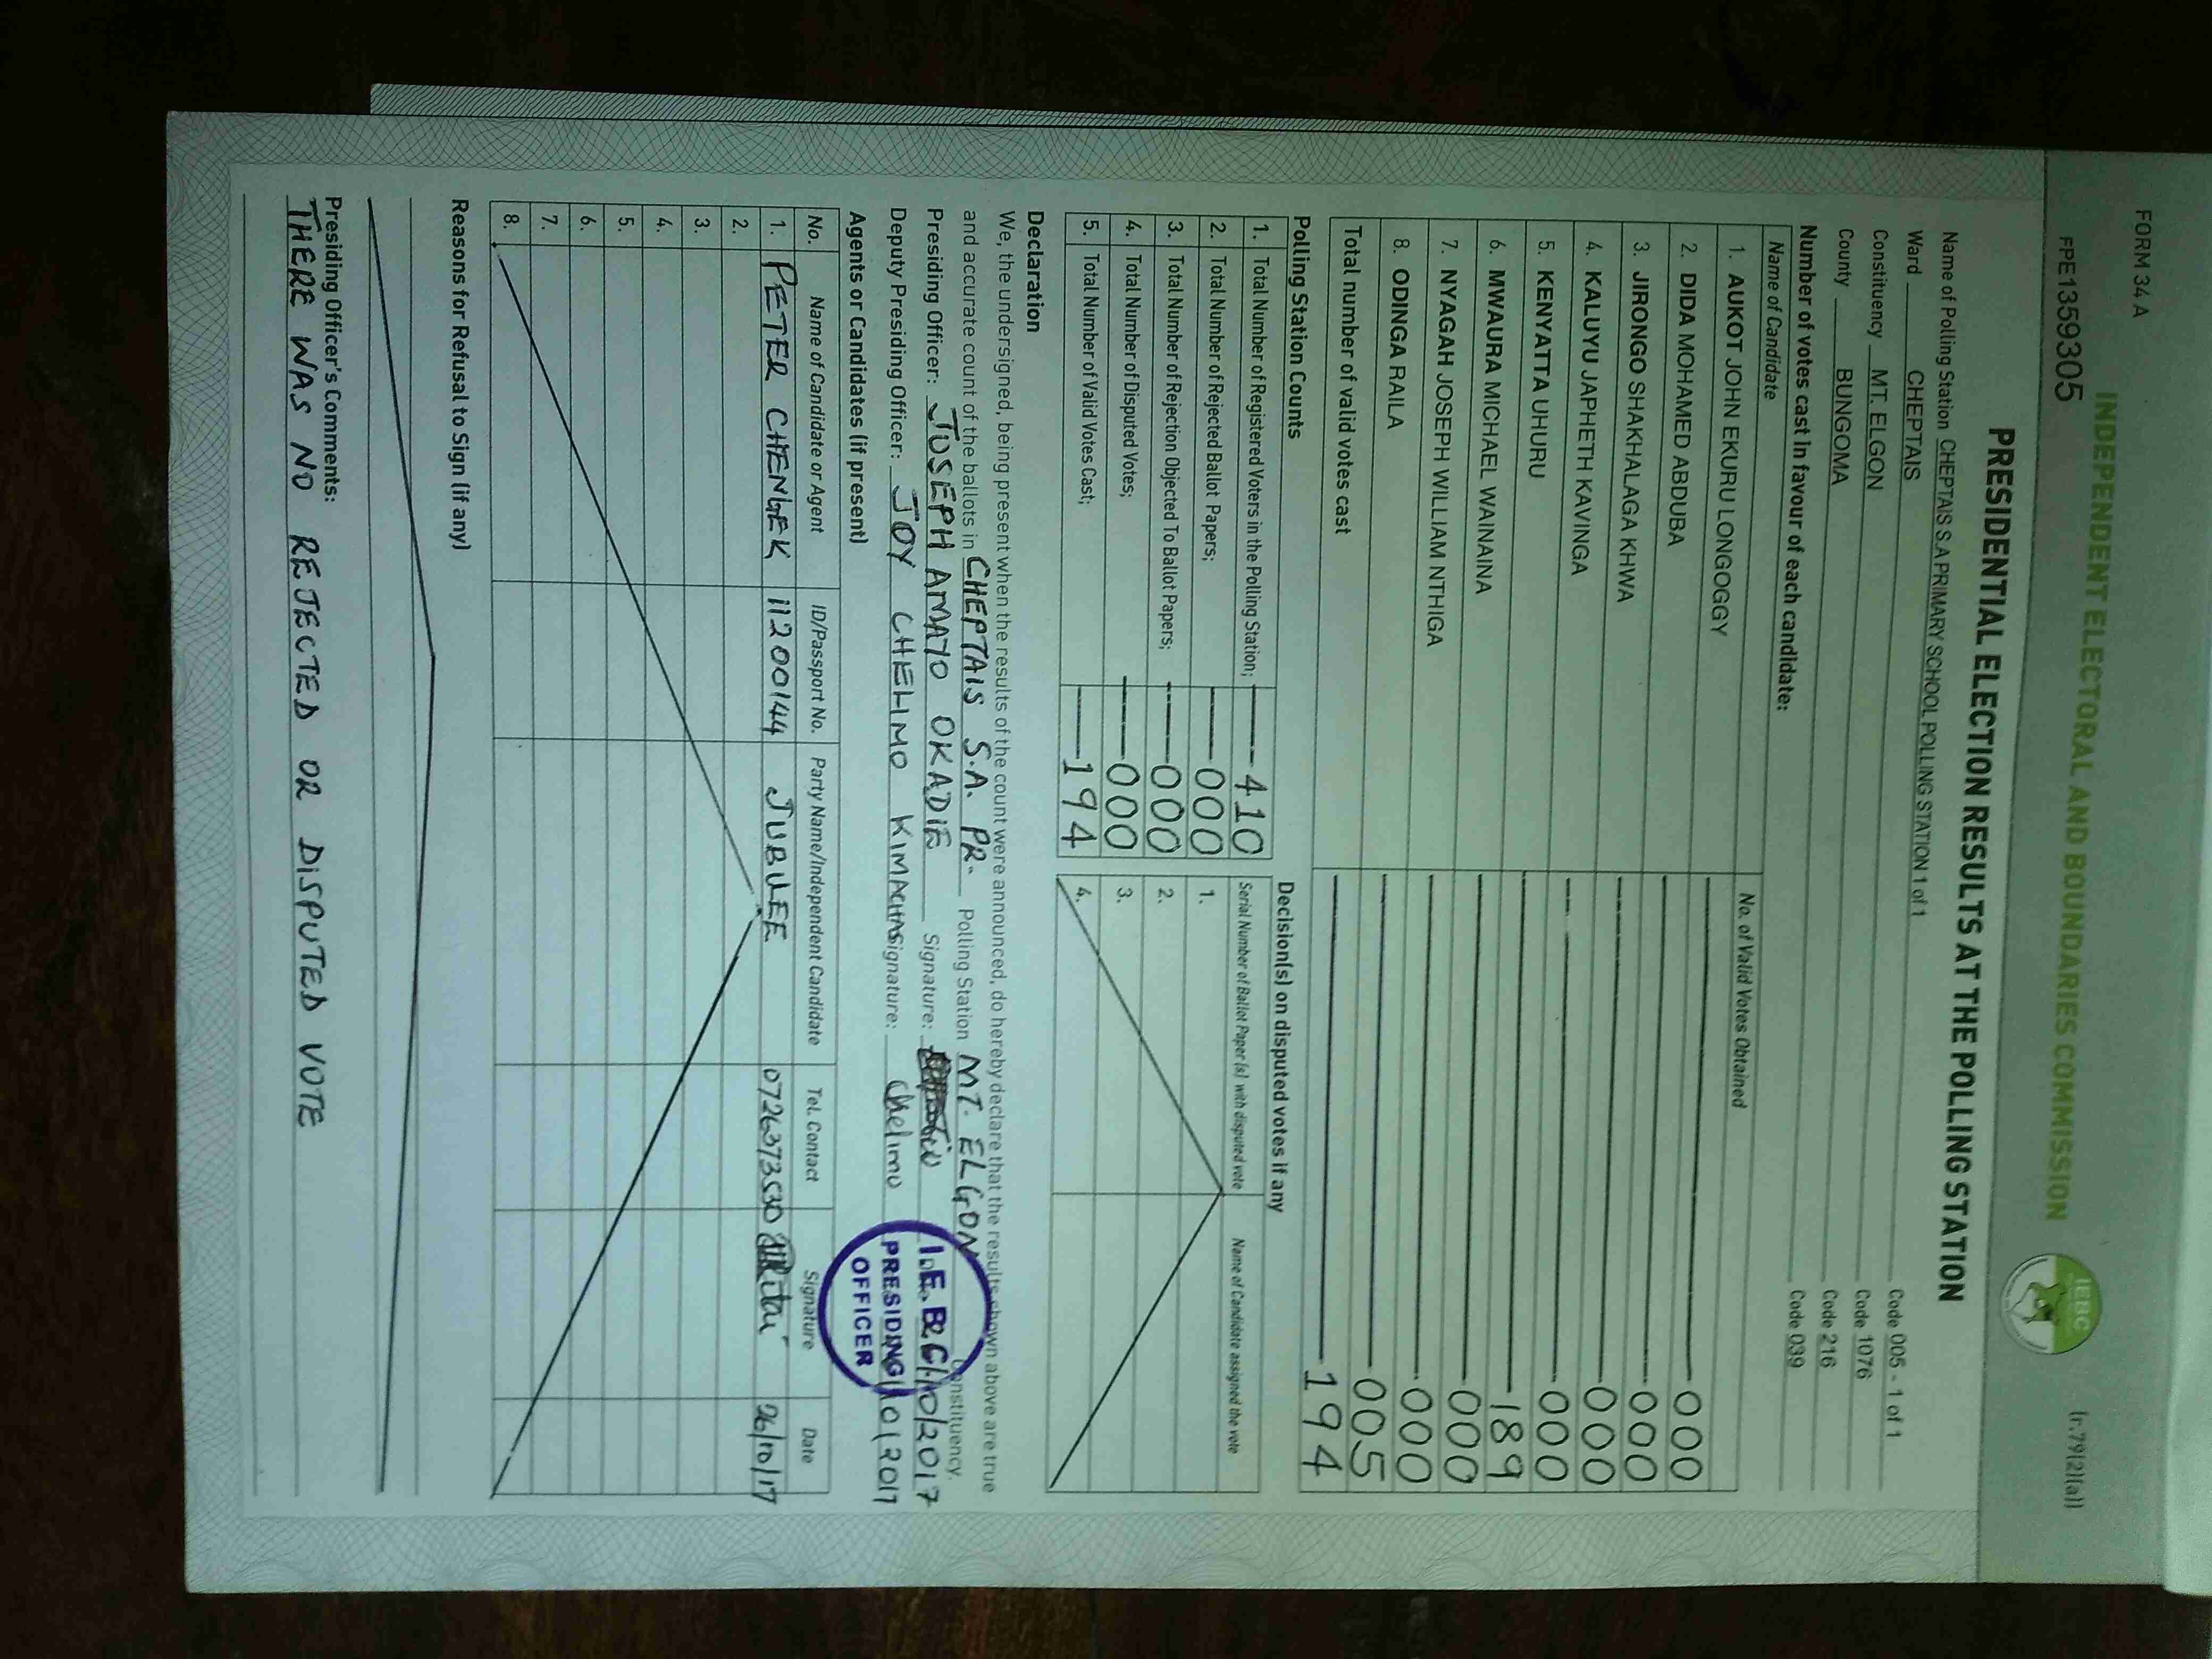 FORM 34 A
(r.79(2)(a))
INDEPENDENT ELECTORAL AND BOUNDARIES COMMISSION
IEBC
FPE1359305
PRESIDENTIAL ELECTION RESULTS AT THE POLLING STATION
Name of Polling Station CHEPTAIS S.A PRIMARY SCHOOL POLLING STATION 1 of 1 Code 005 - 1 of 1
Ward CHEPTAIS Code 1076
Constituency MT. ELGON Code 216
County BUNGOMA Code 039
Number of votes cast in favour of each candidate:
Name of Candidate No. of Valid Votes Obtained
1. AUKOT JOHN EKURU LONGOGGY 000
2. DIDA MOHAMED ABDUBA 000
3. JIRONGO SHAKHALAGA KHWA 000
4. KALUYU JAPHETH KAVINGA 000
5. KENYATTA UHURU 189
6. MWAURA MICHAEL WAINAINA 000
7. NYAGAH JOSEPH WILLIAM NTHIGA 000
8. ODINGA RAILA 005
Total number of valid votes cast 194
Polling Station Counts
1. Total Number of Registered Voters in the Polling Station; 410
2. Total Number of Rejected Ballot Papers; 000
3. Total Number of Rejection Objected To Ballot Papers; 000
4. Total Number of Disputed Votes; 000
5. Total Number of Valid Votes Cast; 194
Decision(s) on disputed votes if any
Serial Number of Ballot Paper(s) with disputed vote Name of Candidate assigned the vote
1.
2.
3.
4.
Declaration
We, the undersigned, being present when the results of the count were announced, do hereby declare that the results shown above are true
and accurate count of the ballots in CHEPTAIS S.A. PR. Polling Station MT. ELGON Constituency.
Presiding Officer: JOSEPH AMAYO OKADIE Signature: /10/2017
Deputy Presiding Officer: JOY CHELIMO Signature: Chelimo /10/2017
I.E.B.C
PRESIDING
OFFICER
Agents or Candidates (if present)
No. Name of Candidate or Agent ID/Passport No. Party Name/Independent Candidate Tel. Contact Signature Date
1. PETER CHENGEK 11200144 JUBULEE 0726373530 26/10/17
2.
3.
4.
5.
6.
7.
8.
Reasons for Refusal to Sign (if any)
Presiding Officer's Comments:
THERE WAS NO REJECTED OR DISPUTED VOTE